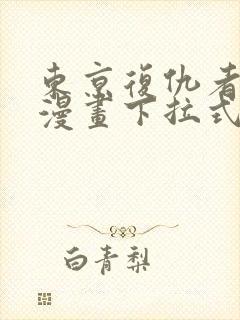 東京復仇者
漫畫下拉式
白青梨